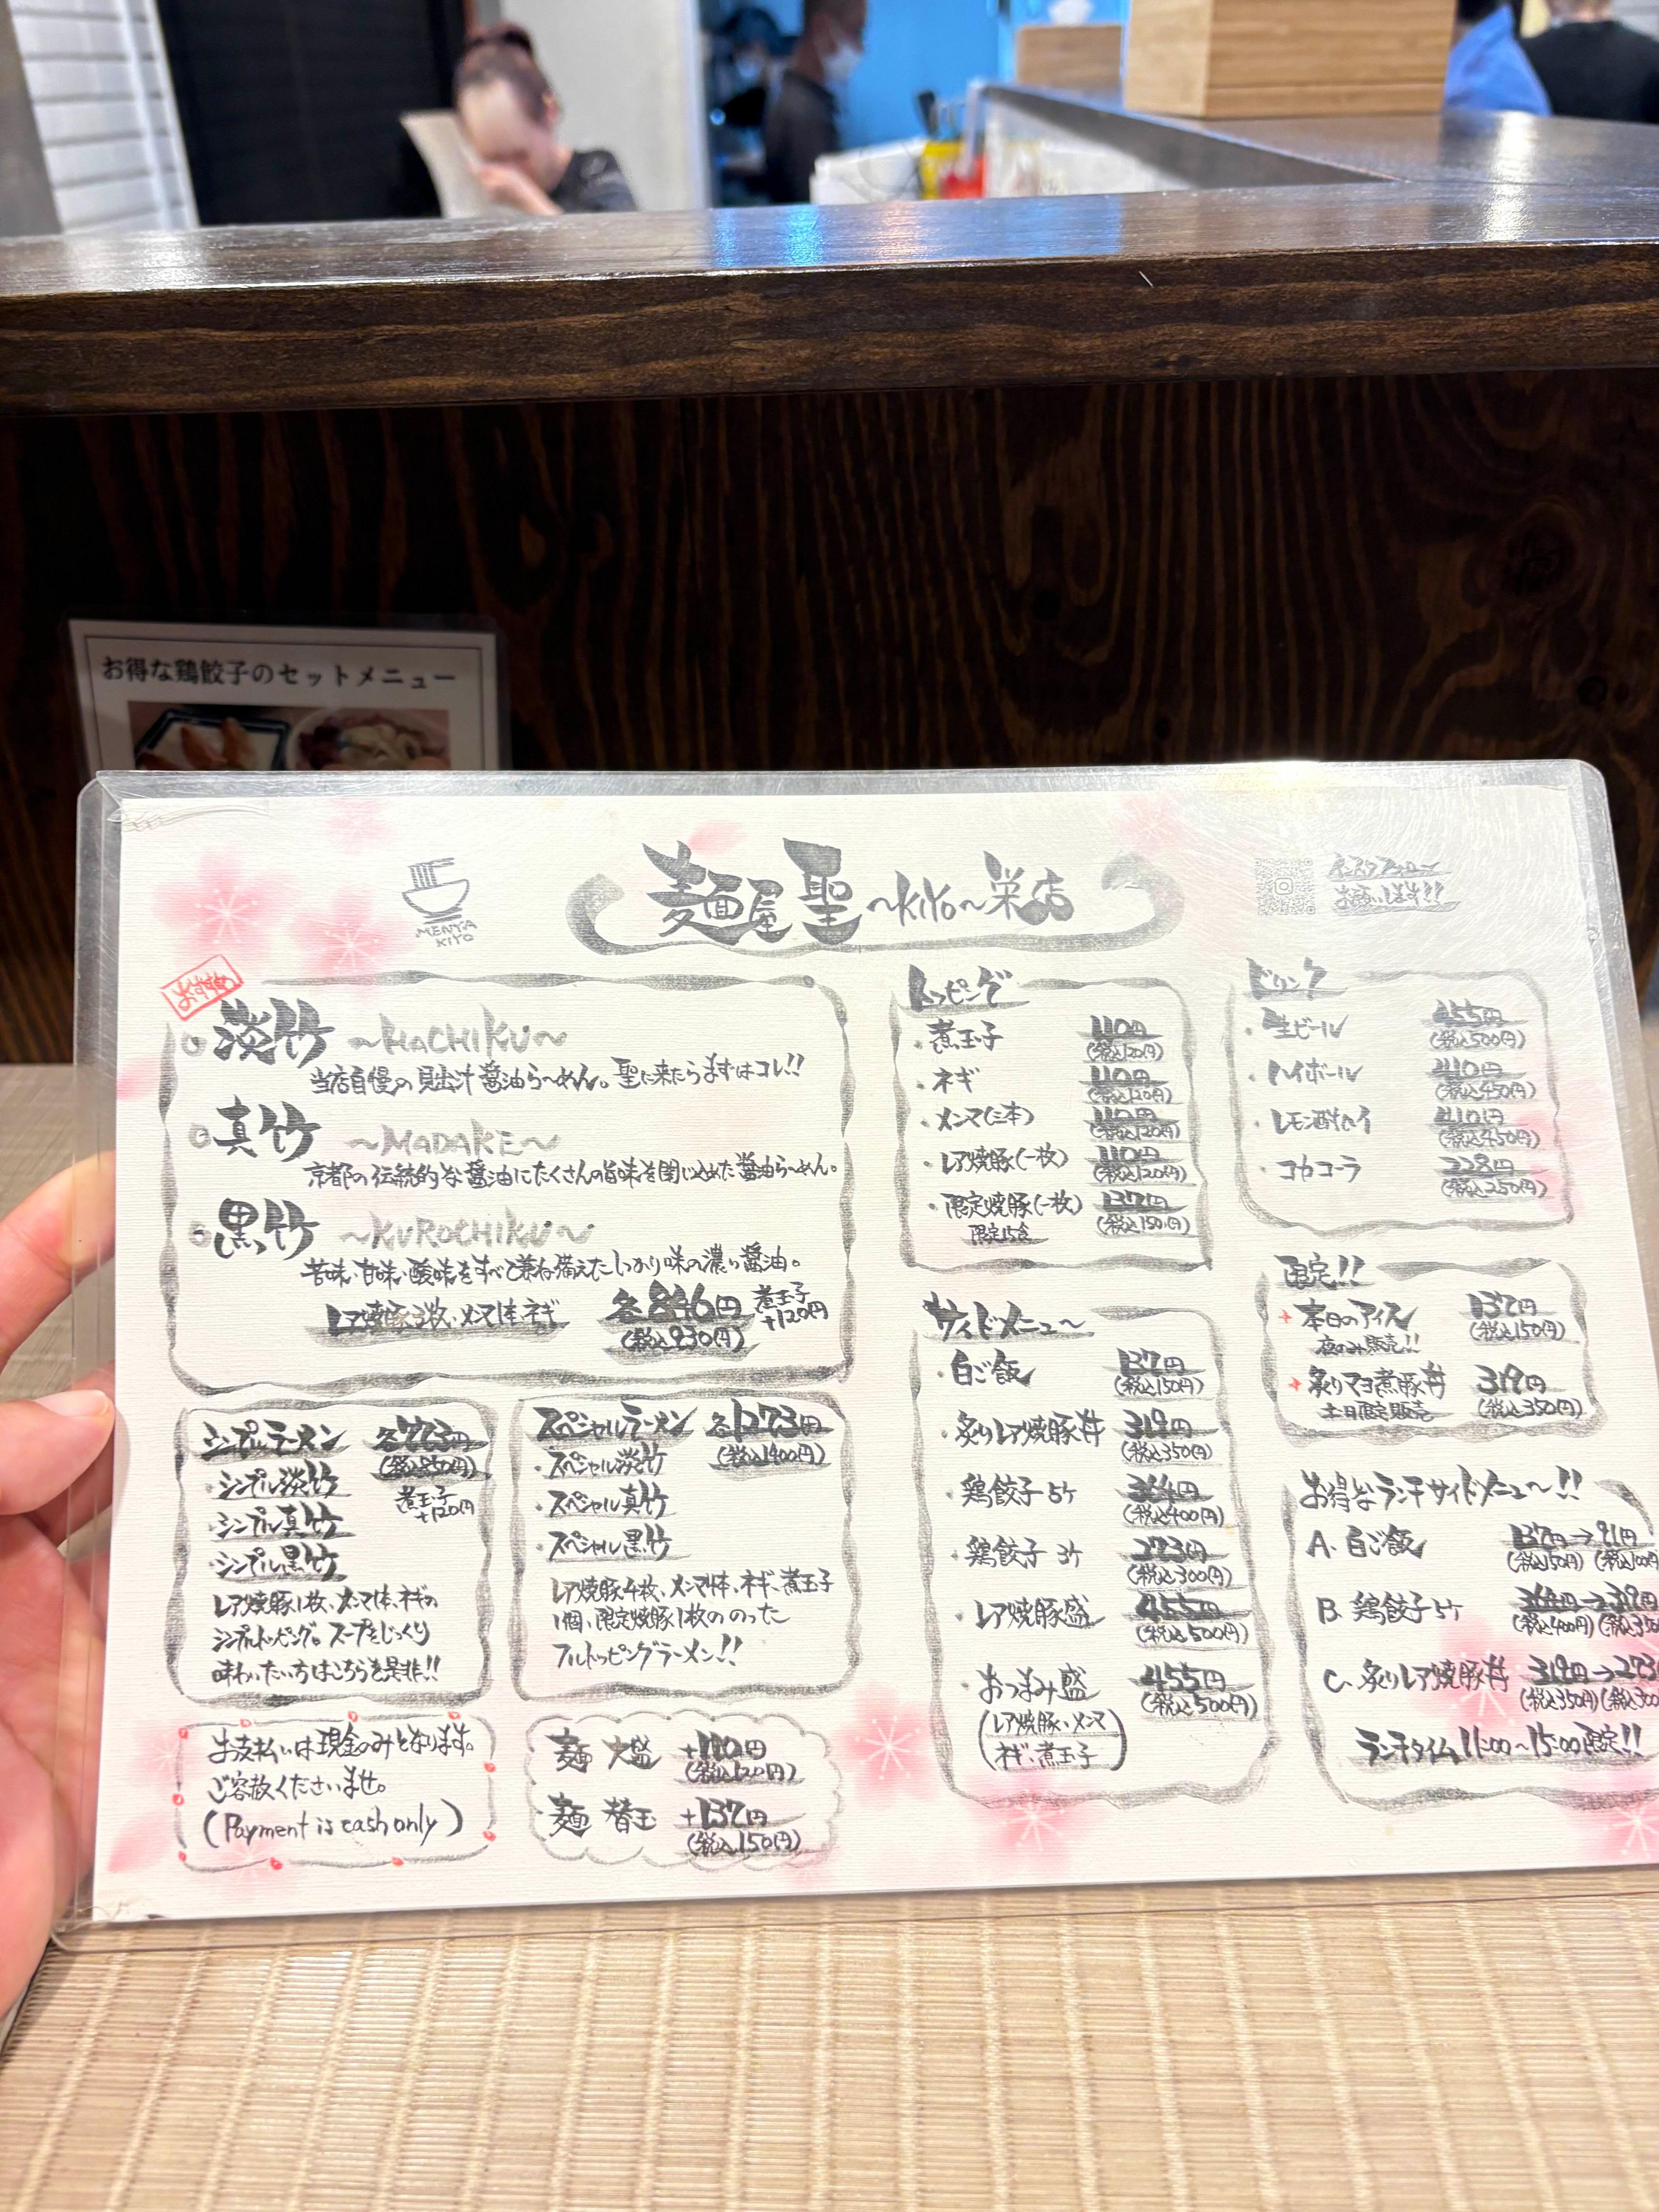 お得な鶏餃子のセットメニュー
MENYA
KIYO
麺屋 聖 ~KIYO~ 栄店
インスタフォロー
お願いします!!
おすすめ
淡竹 ~HACHIKU~
当店自慢の貝出汁醤油らーめん。聖に来たらまずはコレ!!
真竹 ~MADAKE~
京都の伝統的な醤油にたくさんの旨味を閉じ込めた醤油らーめん。
黒竹 ~KUROCHIKU~
苦味、甘味、酸味をすべて兼ね備えたしっかり味の濃い醤油。
レア焼豚3枚、メンマ1本、ネギ
各846円
(税込930円)
煮玉子
+120円
シンプルラーメン 各773円
(税込850円)
・シンプル淡竹
・シンプル真竹
・シンプル黒竹
煮玉子
+120円
レア焼豚1枚、メンマ1本、ネギの
シンプルトッピング。スープをじっくり
味わいたい方はこちらを是非!!
スペシャルラーメン 各1273円
(税込1400円)
・スペシャル淡竹
・スペシャル真竹
・スペシャル黒竹
レア焼豚4枚、メンマ1本、ネギ、煮玉子
1個、限定焼豚1枚ののった
フルトッピングラーメン!!
お支払いは現金のみとなります。
ご容赦くださいませ。
(Payment is cash only)
・麺 大盛 +110円
(税込120円)
・麺 替玉 +137円
(税込150円)
トッピング
・煮玉子 110円
(税込120円)
・ネギ 110円
(税込120円)
・メンマ(三本) 110円
(税込120円)
・レア焼豚(一枚) 110円
(税込120円)
・限定焼豚(一枚) 137円
限定15食 (税込150円)
サイドメニュー
・白ご飯 137円
(税込150円)
・炙りレア焼豚丼 319円
(税込350円)
・鶏餃子 5ケ 364円
(税込400円)
・鶏餃子 3ケ 273円
(税込300円)
・レア焼豚盛 455円
(税込500円)
・おつまみ盛 455円
(税込500円)
(レア焼豚、メンマ
ネギ、煮玉子)
ドリンク
・生ビール 455円
(税込500円)
・ハイボール 410円
(税込450円)
・レモン酎ハイ 410円
(税込450円)
・コカコーラ 228円
(税込250円)
限定!!
本日のアイス 137円
夜のみ販売!! (税込150円)
炙りマヨ煮豚丼 319円
土日限定販売 (税込350円)
お得なランチサイドメニュー!!
A. 白ご飯 137円→91円
(税込150円) (税込100円)
B. 鶏餃子5ケ 364円→319円
(税込400円) (税込350
C. 炙りレア焼豚丼 319円→273
(税込350円) (税込300
ランチタイム 11:00~15:00限定!!